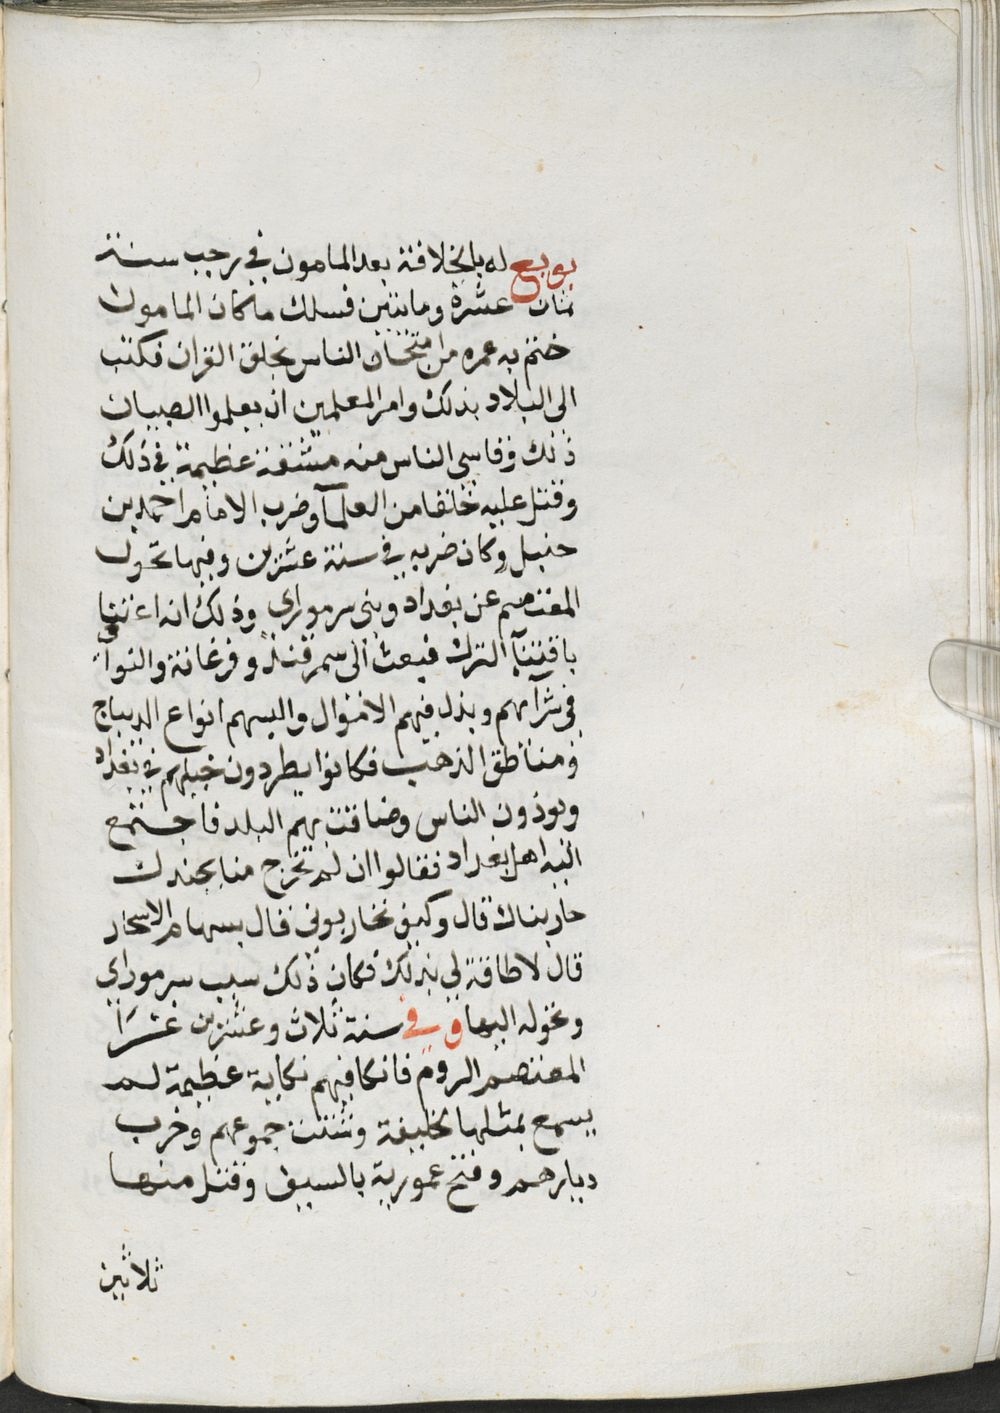 بويع له بالخلافة بعد المامون في رجب سنة
ثمان عشرة وماتتين فسلك ماكان المامون
ختم به عمره من امتحان الناس بخلق القران فكتب
الى البلاد بذلك وامر المعلمين ان يعلموا الصبيان
ذلك وقاسى الناس منه مشقة عظيمة في ذلك
وقتل عليه خلقا من العلمآ وضرب الامام احمد بن
حنبل وكان ضربه في سنة عشرين وفيها تحول
المعتصم عن بغداد وبنى سر موراى وذلك انه اعتنا
باقتنآ الترك فبعث الى سمرقند وفرغانة والنوآ
في شرآئهم وبذل فيهم الاموال والبسهم انواع الديباج
ومناطق الذهب فكانوا يطردون خيلهم في بغداد
ويوذون الناس وضاقت بهم البلد فاجتمع
اليه اهل بغداد فقالوا ان لم تخرج منا بجندك
حاربناك قال وكيف تحاربوني قال بسهام الاسحار
قال لا طاقة لي بذلك فكان ذلك سبب سر موراى
وتحوله اليها وفي سنة ثلاث وعشرين غزا
المعتصم الروم فانكا فيهم نكاية عظيمة لم
يسمع بمثلها لخليفة وشتت جموعهم وخرب
ديارهم وفتح عمورية بالسيف وقتل منها
ثلاثين